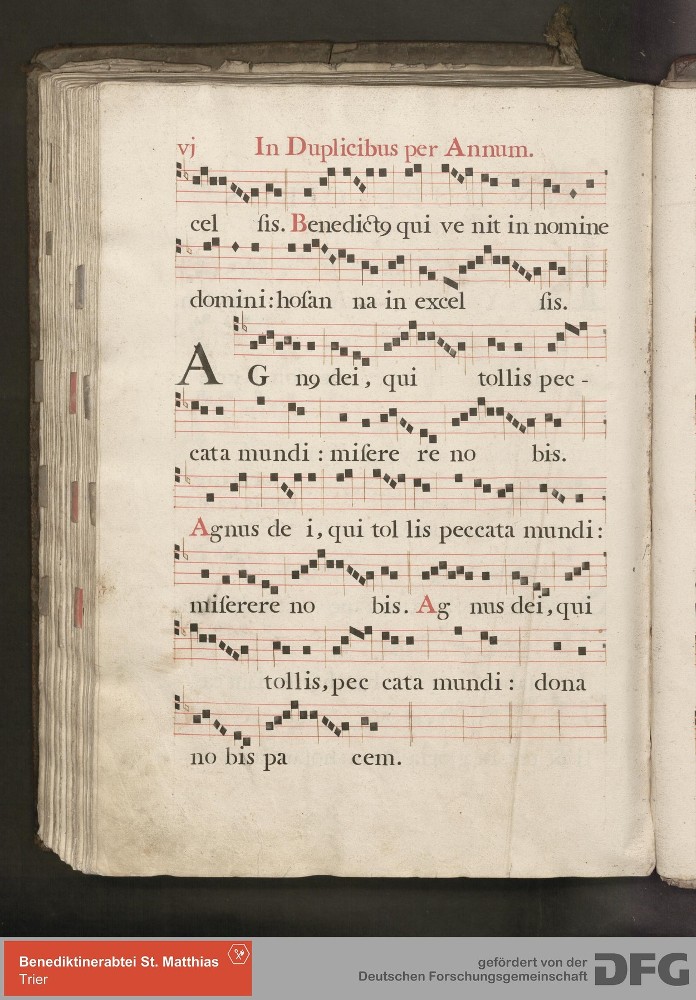 vj In Duplicibus per Annum.
cel ſis. Benedictꝰ qui ve nit in nomine
domini: hoſan na in excel ſis.
A G nꝰ dei, qui tollis pec-
cata mundi: miſere re no bis.
Agnus de i, qui tol lis peccata mundi:
miſerere no bis. Ag nus dei, qui
tollis, pec cata mundi: dona
no bis pa cem.
Benediktinerabtei St. Matthias
Trier
gefördert von der
Deutschen Forschungsgemeinschaft
DFG